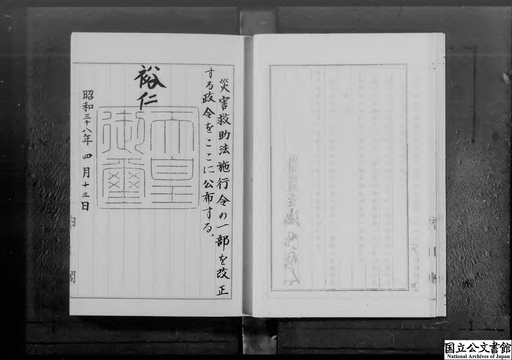 災害救助法施行令の一部を改正
する政令をここに公布する。
裕仁
天皇
御璽
昭和三十八年四月十三日
内閣
国立公文書館
National Archives of Japan